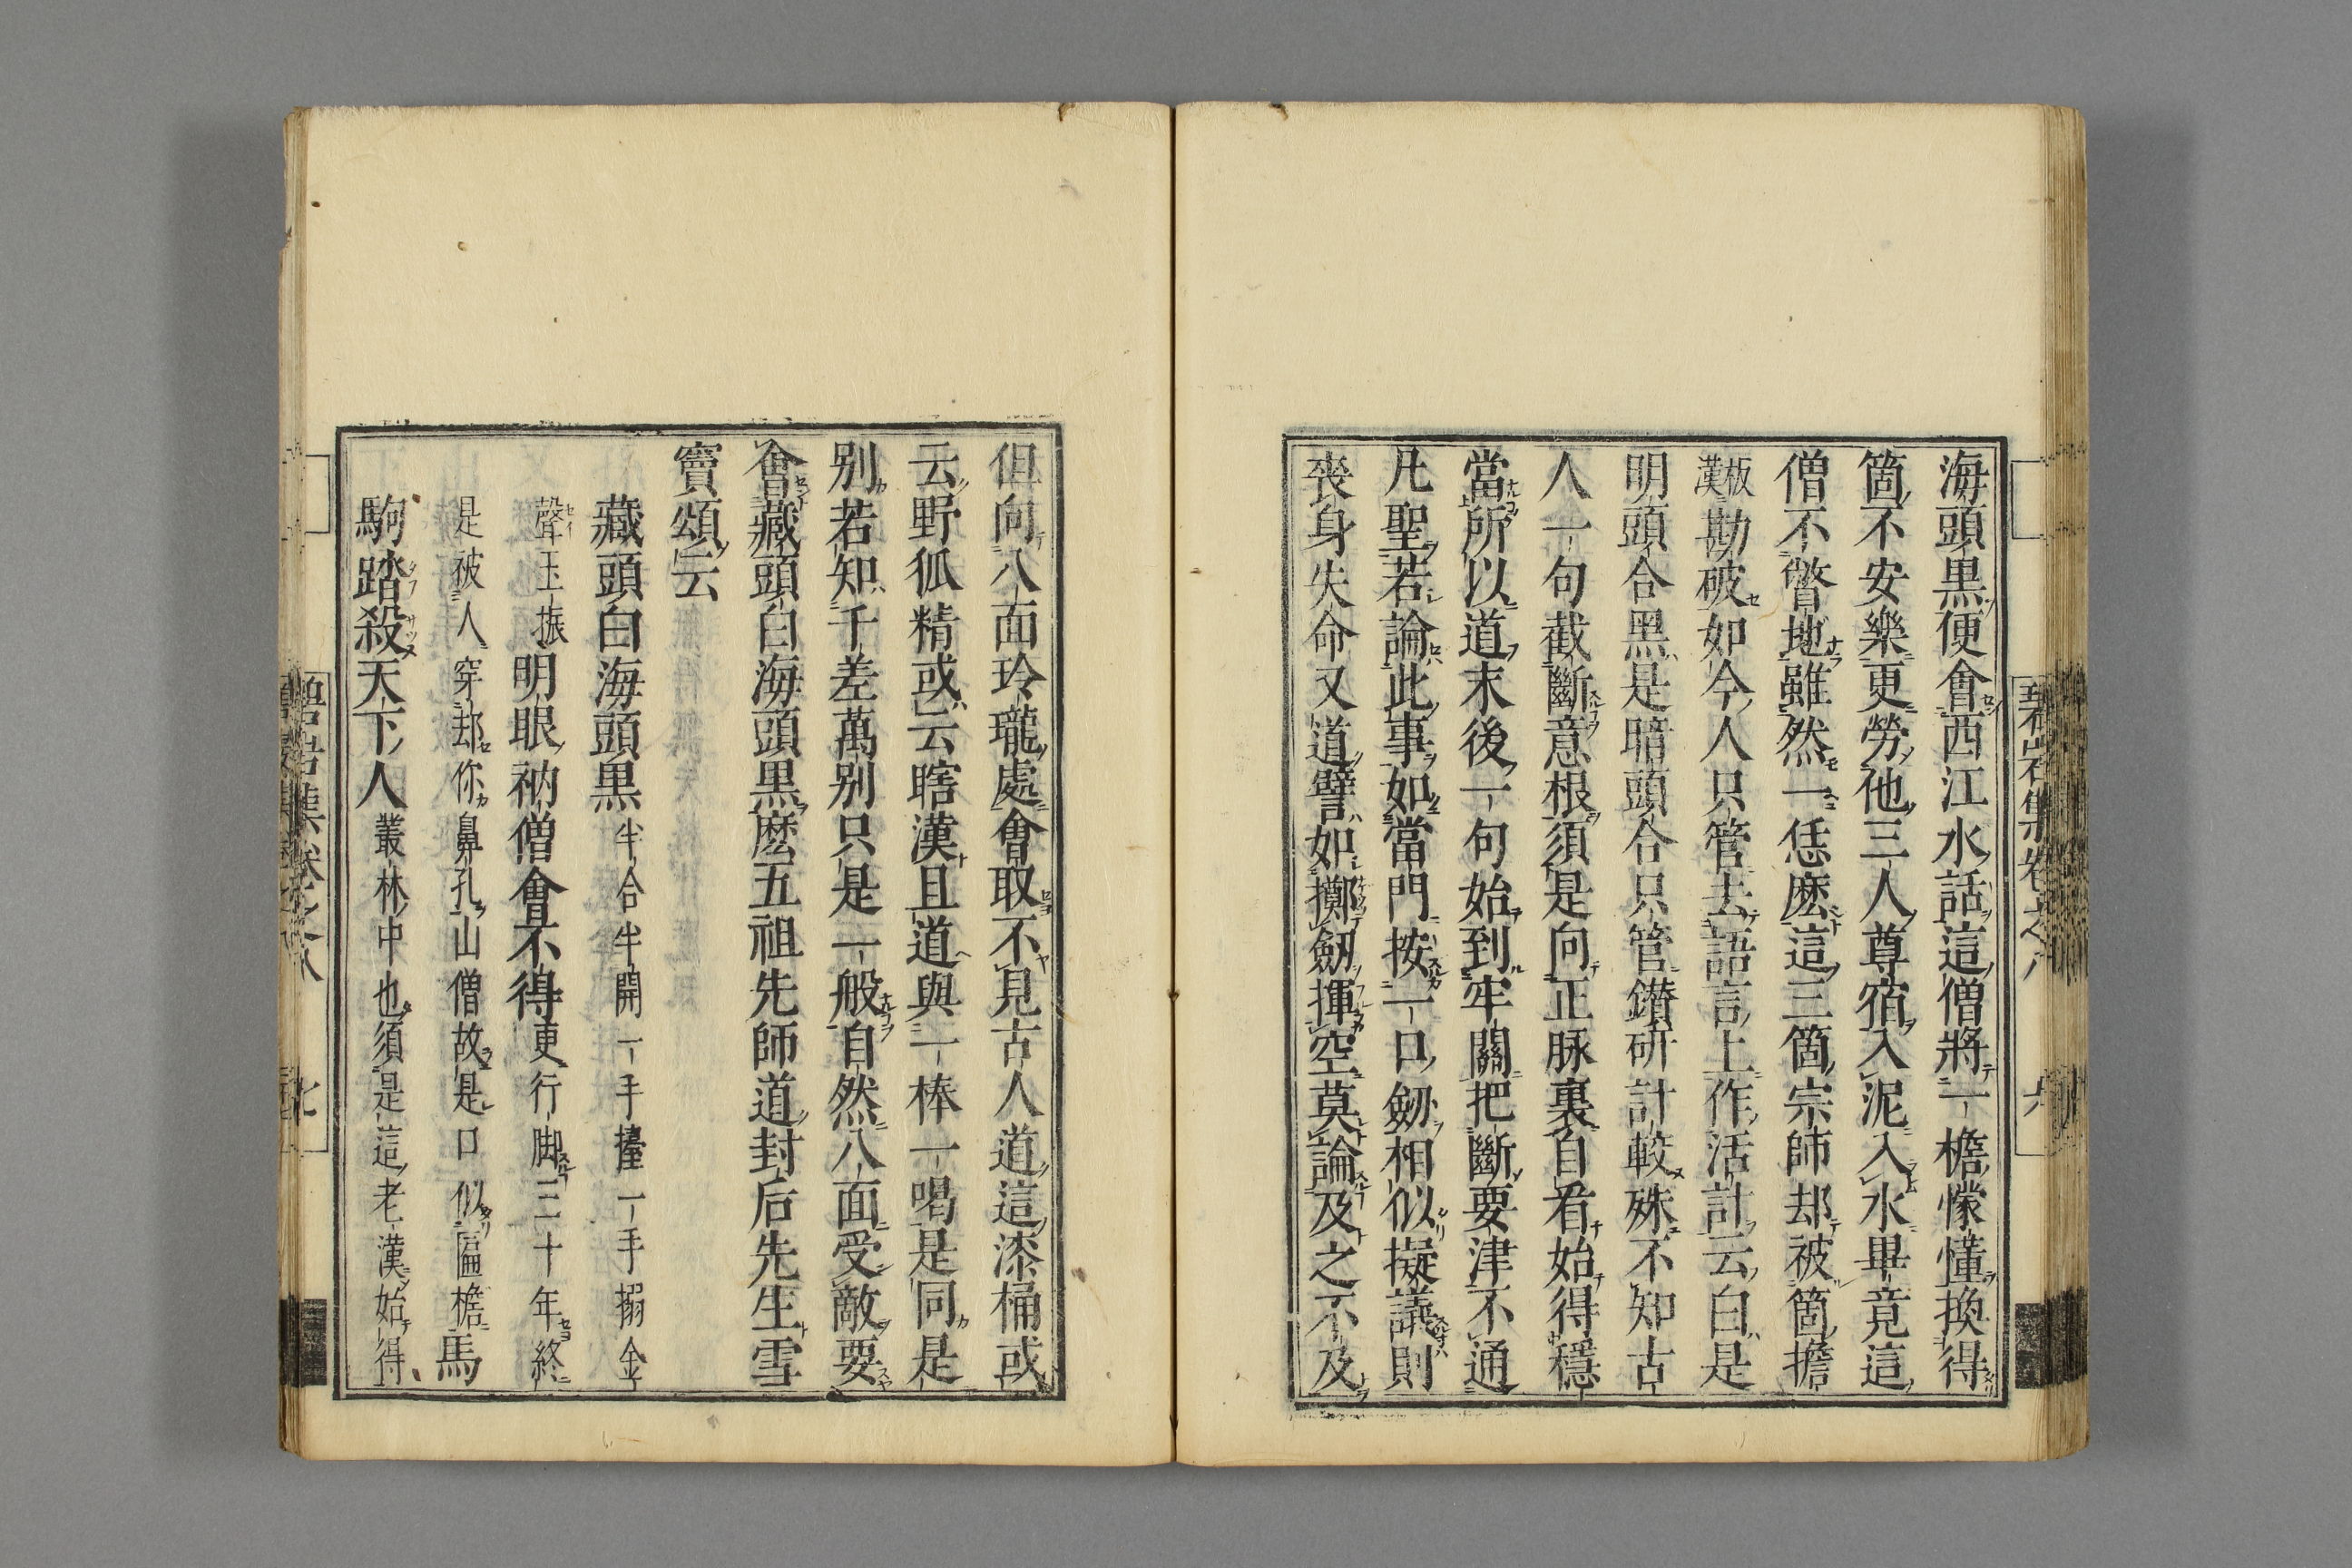 海頭黒便會西江水話這僧將一檐懞懂換得
箇不安樂更勞他三人尊宿入泥入水畢竟這
僧不瞥地雖然一恁麽這三箇宗師却被箇擔
板漢勘破如今人只管去語言上作活計云白是
明頭合黒是暗頭合只管鑚研計較殊不知古
人一句截斷意根須是向正脉裏自看始得穩
當所以道末後一句始到牢關把斷要津不通
凡聖若論此事如當門按一口劔相似擬議則
喪身失命又道譬如擲劔揮空莫論及之不及
但向八面玲瓏處會取不見古人道這漆桶或
云野狐精或云瞎漢且道與一棒一喝是同是
別若知千差萬別只是一般自然八面受敵要
會藏頭白海頭黒麽五祖先師道封后先生雪
竇頌云
藏頭白海頭黒半合半開一手擡一手搦金
聲玉振明眼衲僧會不得更行脚三十年終
是被人穿却你鼻孔山僧故是口似匾檐馬
駒踏殺天下人叢林中也須是這老漢始得
碧岩集卷之八